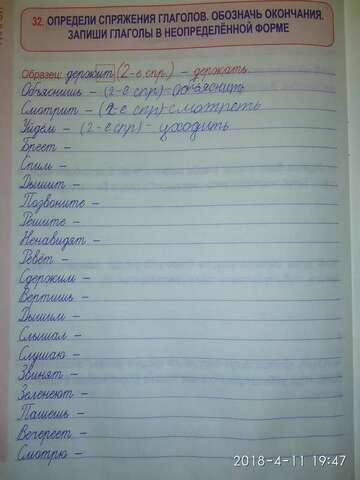 32. ОПРЕДЕЛИ СПРЯЖЕНИЯ ГЛАГОЛОВ. ОБОЗНАЧЬ ОКОНЧАНИЯ.
ЗАПИШИ ГЛАГОЛЫ В НЕОПРЕДЕЛЁННОЙ ФОРМЕ
Образец: держит (2-е спр.) – держать.
Объяснишь – (2-е спр)- объяснить
Смотрит – (2е спр)-смотреть
Уйдём – (2-е спр) – уходить
Бреет –
Спим –
Дышит –
Позвоните –
Решите –
Ненавидят –
Ревёт –
Сдержим –
Вертишь –
Дышим –
Слышал –
Слушаю –
Звенят –
Зеленеют –
Пашешь –
Вечереет –
Смотрю –
2018-4-11 19:47